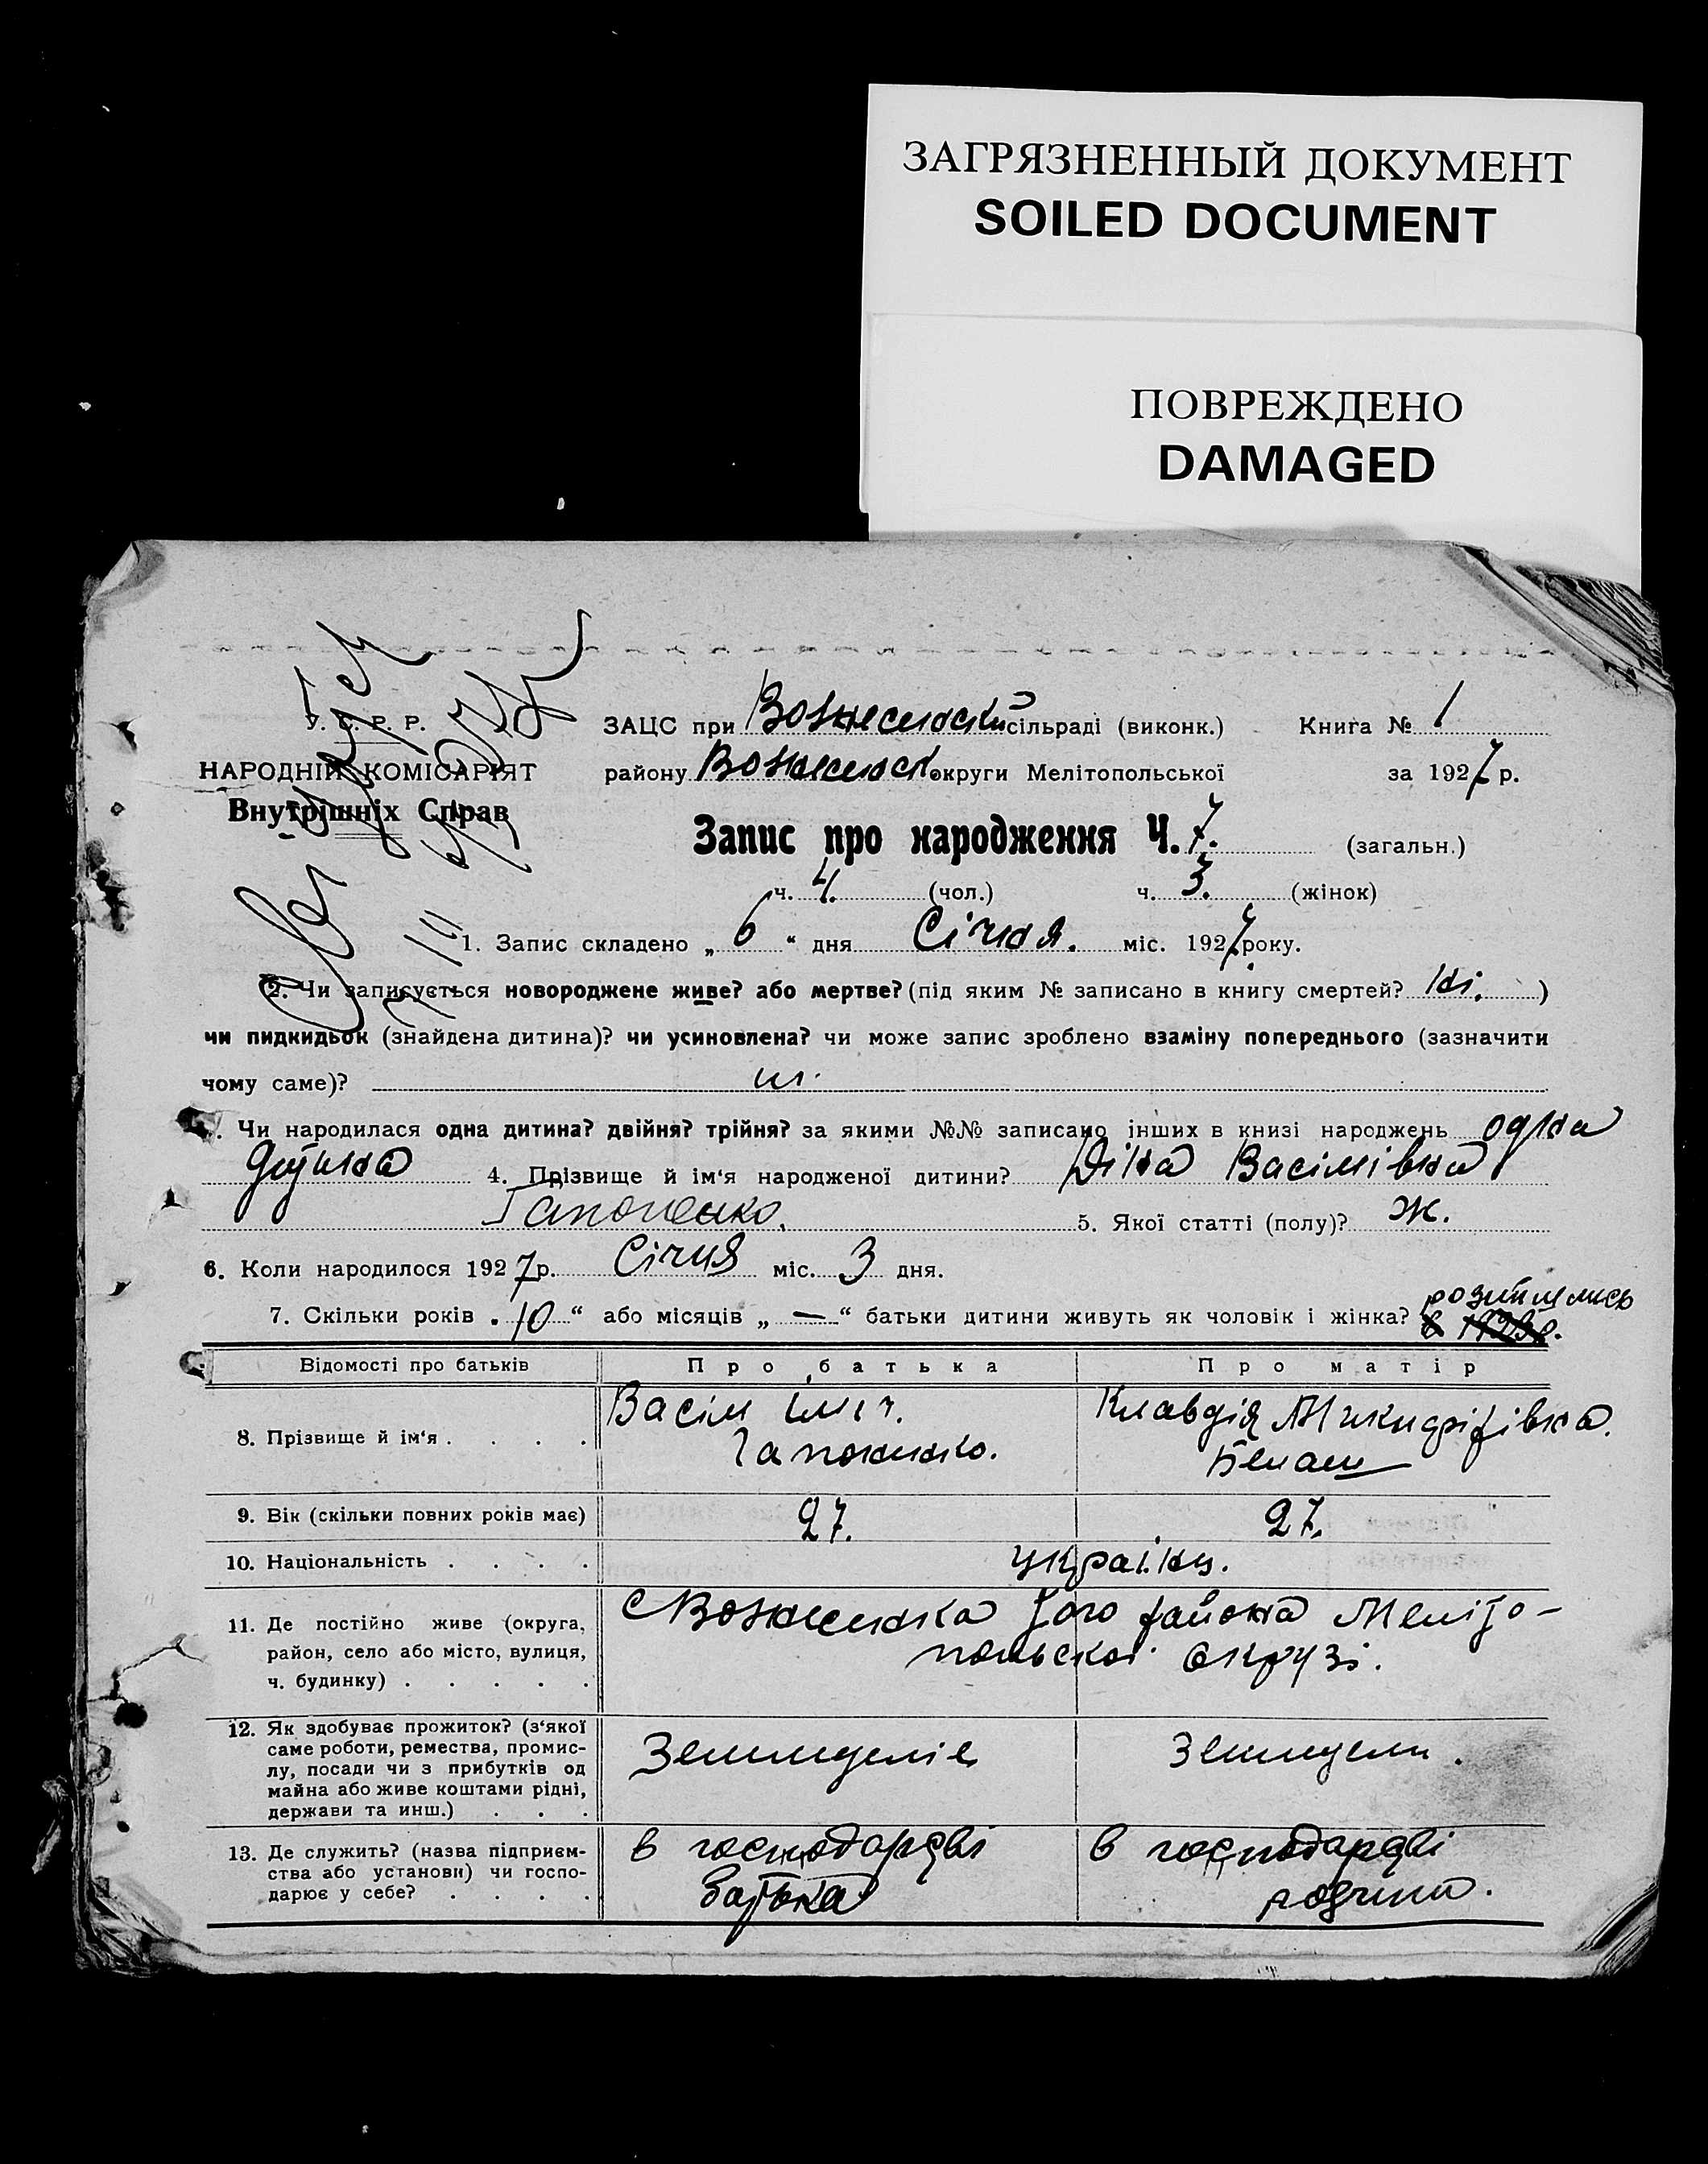 ЗАГРЯЗНЕННЫЙ ДОКУМЕНТ
SOILED DOCUMENT
ПОВРЕЖДЕНО
DAMAGED
У. С. Р. Р.
НАРОДНІЙ КОМІСАРІЯТ
Внутрішніх Справ
ЗАЦС при Вознесенскій сільраді (виконк.) Книга № 1
району Вознесенск округи Мелітопольської за 1927 р.
Запис про народження Ч. 7. (загальн.)
ч. 4. (чол.) ч. 3. (жінок)
1. Запис складено „ 6 “ дня Січня. міс. 1927 року.
2. Чи записується новороджене живе? або мертве? (під яким № записано в книгу смертей? ні. )
чи пидкидьок (знайдена дитина)? чи усиновлена? чи може запис зроблено взаміну попереднього (зазначити
чому саме)? ні.
Чи народилася одна дитина? двійня? трійня? за якими №№ записано інших в книзі народжень одна
4. Прізвище й ім‘я народженої дитини? Діна Васілівна
Гапоненко. 5. Якої статті (полу)? ж.
6. Коли народилося 1927 р. Січня міс. 3 дня.
7. Скільки років „ 10 “ або місяців „ — “ батьки дитини живуть як чоловік і жінка?
Відомості про батьків Про батька Про матір
8. Прізвище й ім‘я . . . . Васіл Гапоненко. Клавдія Белаш
9. Вік (скільки повних років має) 27. 27.
10. Національність . . . . україн.
11. Де постійно живе (округа,
район, село або місто, вулиця,
ч. будинку) . . . . .
с Вознесенка того района Меліто-
польскої окрузі.
12. Як здобуває прожиток? (з‘якої
саме роботи, ремества, промис-
лу, посади чи з прибутків од
майна або живе коштами рідні,
держави та инш.) . . .
Землиделіе
13. Де служить? (назва підприєм-
ства або установи) чи госпо-
дарює у себе? . . . .
в господарстві
батька
в господарстві